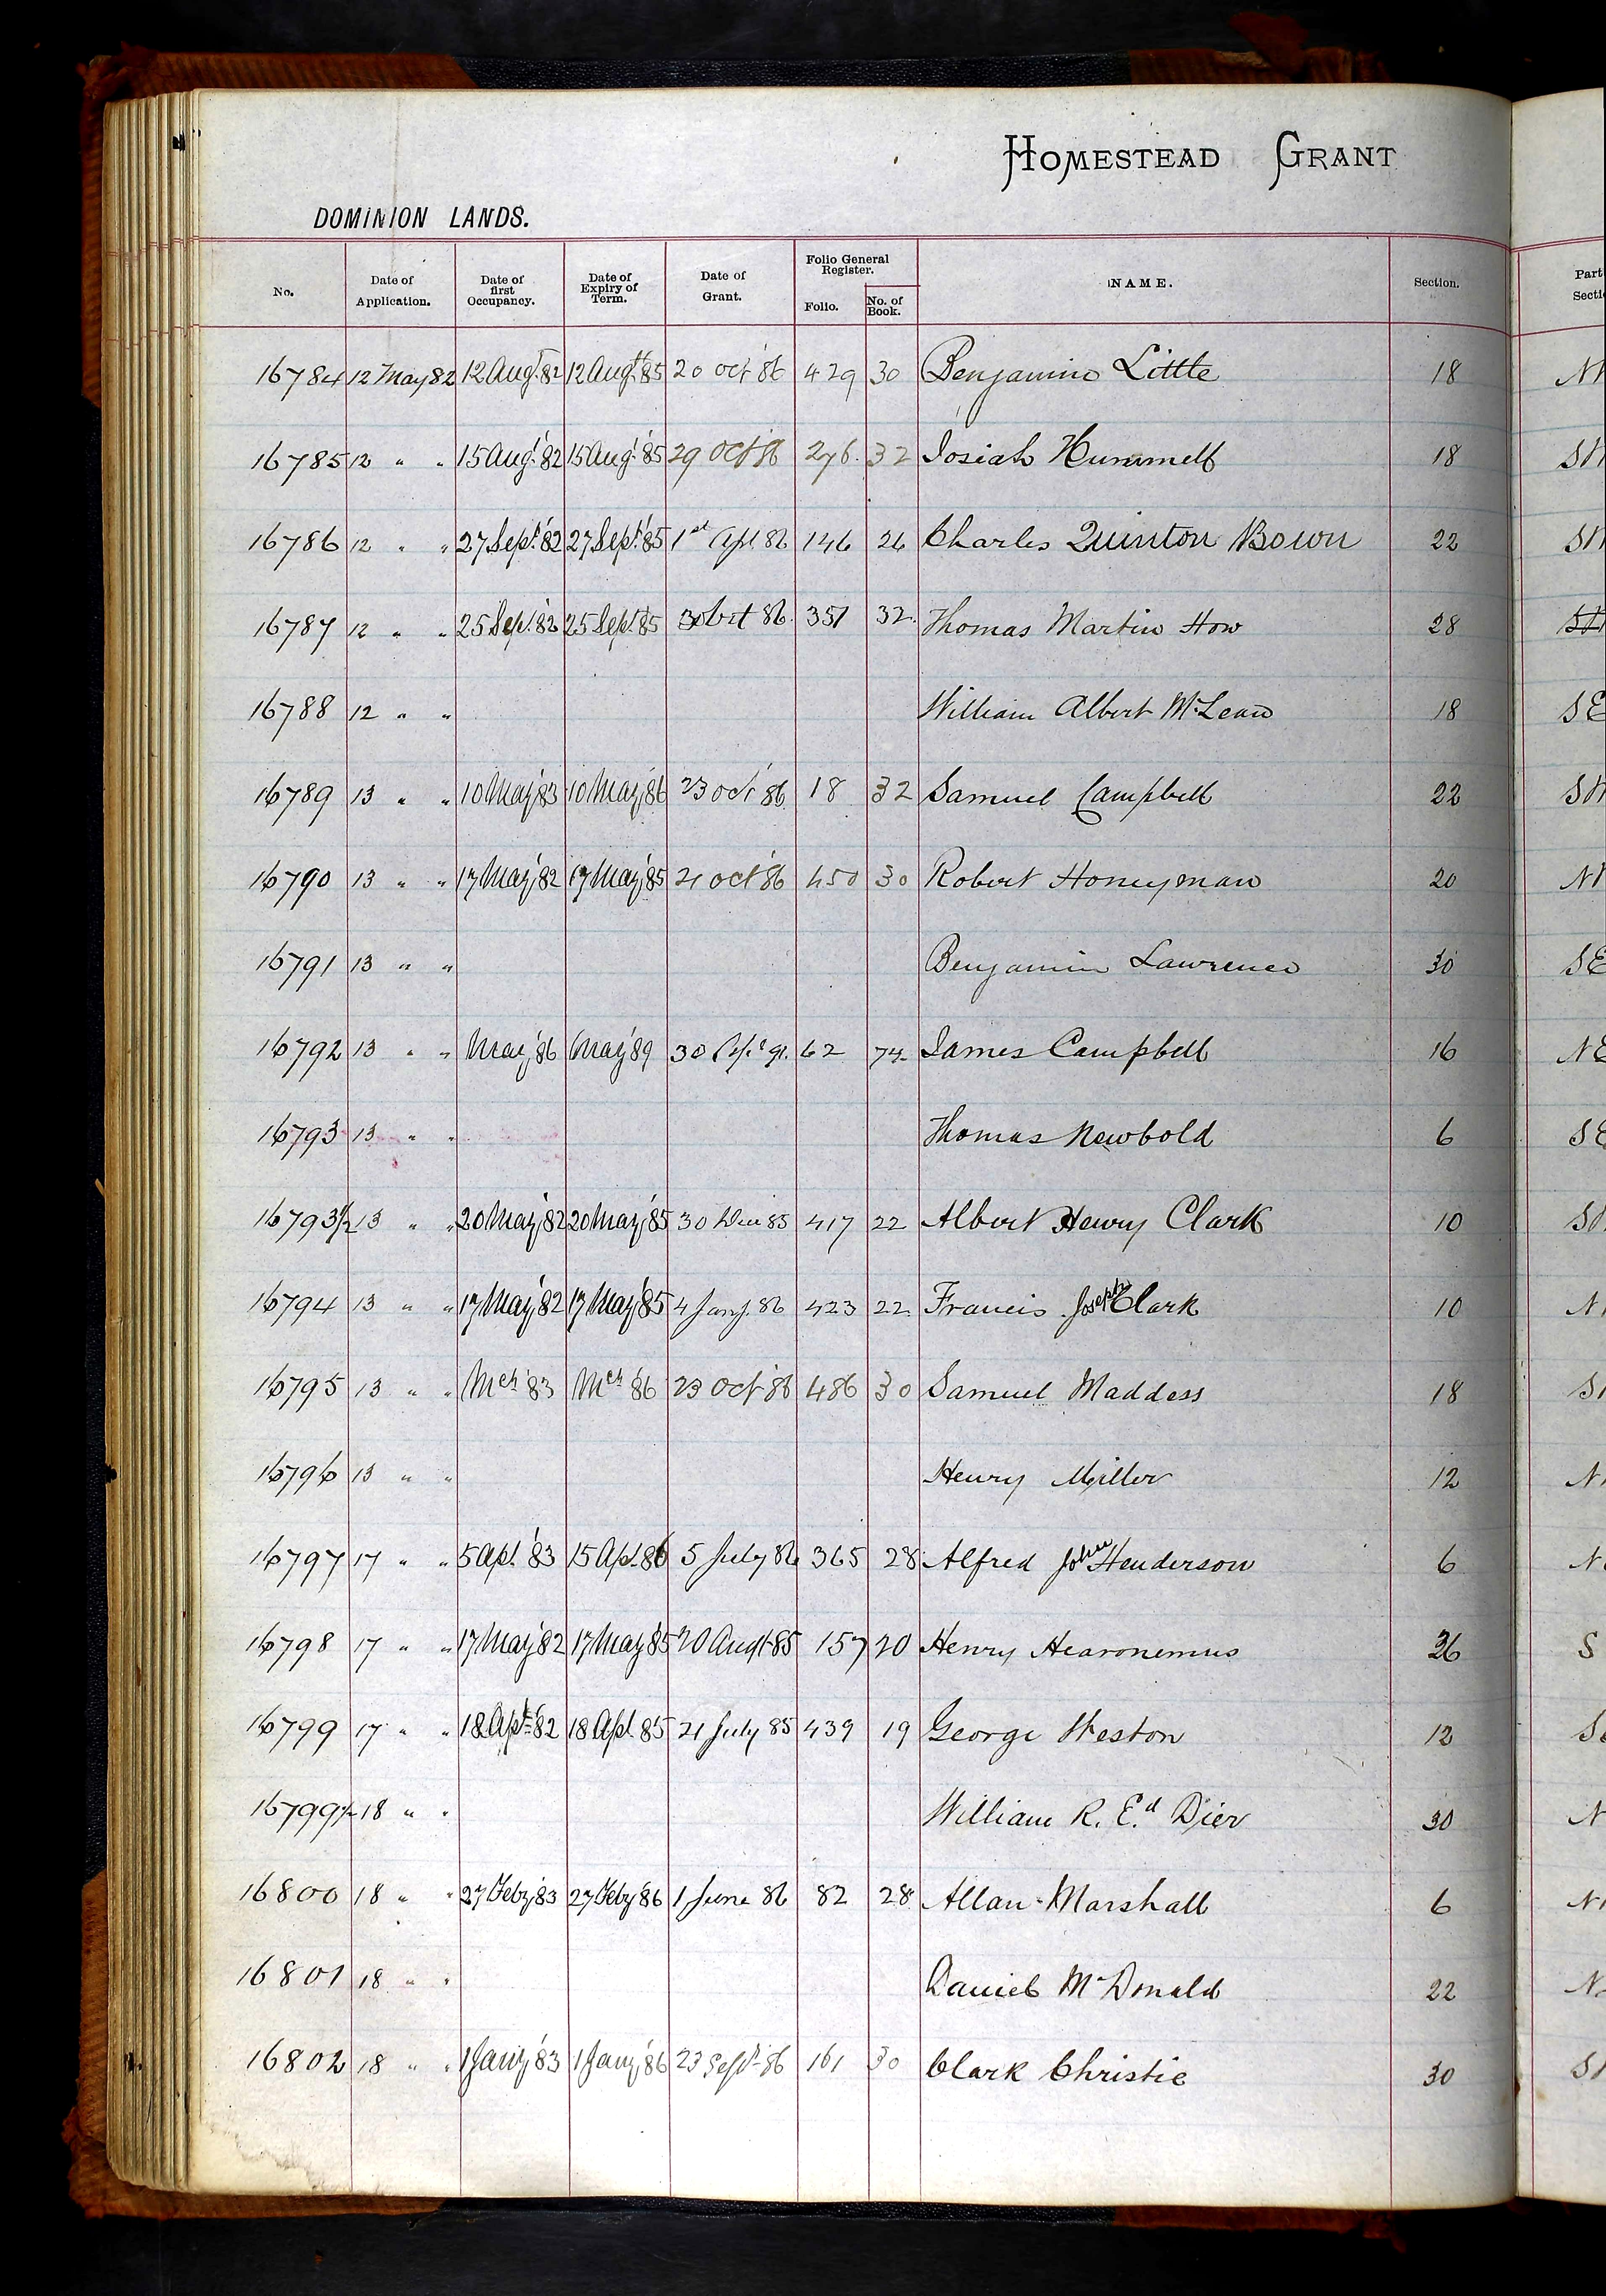 HOMESTEAD GRANT
DOMINION LANDS.
No. Date of Application. Date of first Occupancy. Date of Expiry of Term. Date of Grant. Folio General Register. Folio. No. of Book. NAME. Section. Part Secti
16784 12 May 82 12 Augt 82 12 Augt 85 20 Oct '86 429 30 Benjamin Little 18
16785 12 " " 15 Augt '82 15 Augt '85 29 Oct 86 276 32 Josiah Hummell 18
16786 12 " " 27 Sept '82 27 Sept '85 1st Apl 86 146 26 Charles Quinton Bown 22
16787 12 " " 25 Sept '82 25 Sept '85 30 Oct 86 351 32 Thomas Martin How 28
16788 12 " " William Albert McLean 18 SE
16789 13 " " 10 May '83 10 May '86 23 Oct '86 18 32 Samuel Campbell 22
16790 13 " " 17 May '82 17 May '85 21 Oct '86 450 30 Robert Honeyman 20
16791 13 " " Benjamin Lawrence 30 SE
16792 13 " " May '86 May '89 30 91 62 74 James Campbell 16 NE
16793 13 " " Thomas Newbold 6 SE
16793½ 13 " " 20 May '82 20 May '85 30 Dec 85 417 22 Albert Henry Clark 10
16794 13 " " 17 May '82 17 May '85 4 Jany. 86 423 22 Francis Joseph Clark 10 N
16795 13 " " Mch '83 Mch '86 23 Oct '86 486 30 Samuel Maddess 18 S
16796 13 " " Henry Miller 12 N
16797 17 " " 5 Apl. '83 15 Apl. 86 5 July 86 365 28 Alfred John Henderson 6 N
16798 17 " " 17 May '82 17 May 85 20 Augt 85 157 20 Henry Hearonemus 36 S
16799 17 " " 18 Apl. '82 18 Apl. 85 21 July 85 439 19 George Weston 12 S
16799½ 18 " " William R. Ed Dier 30 N
16800 18 " " 27 Feby '83 27 Feby '86 1 June 86 82 28 Allan Marshall 6 N
16801 18 " " Daniel McDonald 22 N
16802 18 " " 1 Jany '83 1 Jany '86 23 Sept '86 161 30 Clark Christie 30 S